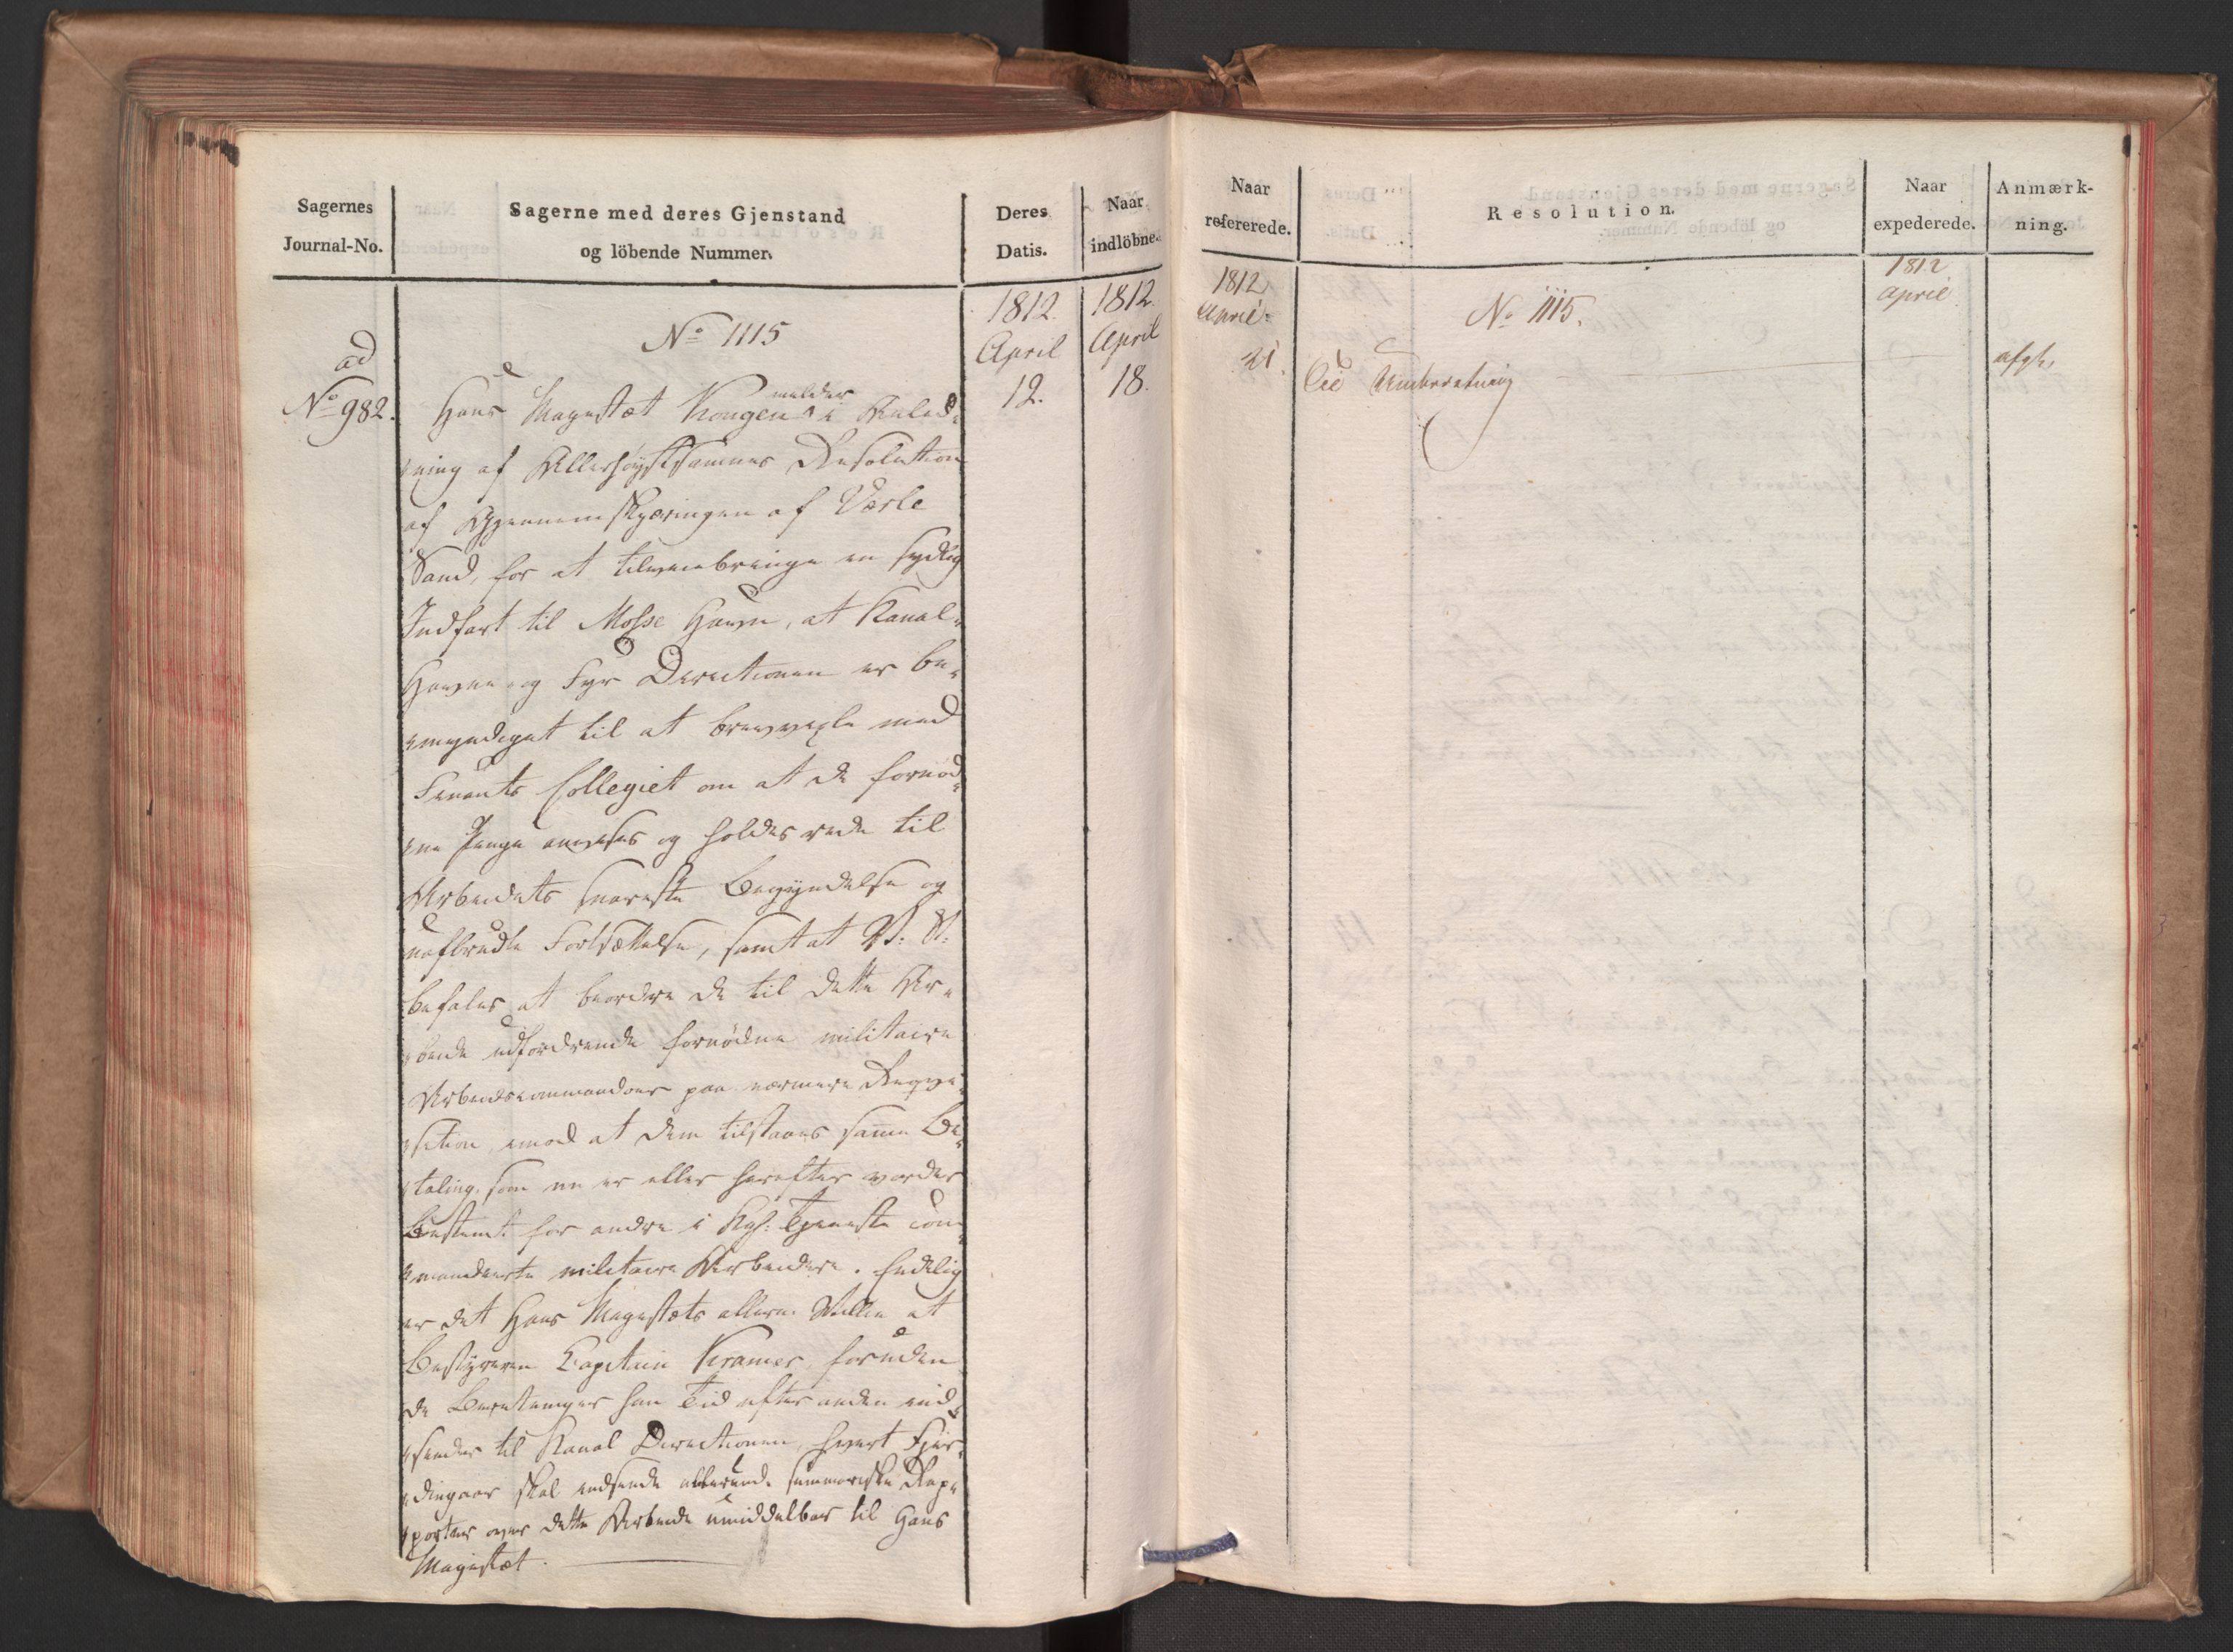 Sagernes
Journal-No.
Sagerne med deres Gjenstand
og löbende Nummer.
Deres
Datis.
Naar
indlöbne.
1812.
April
12.
1812.
April
18.
ad
No 982.
No 1115
Hans Magestæt Kongen melder i Anled-
ning af Allerhøystsammes Resolution
af Gjennemskjæringen af Værle
Sand, for at tilveiebringe en sydlig
Indfart til Mosse Hauvn, at Kanal-
Havne og Fyr Directionen er be-
myndiget til at brevvexle med
Finants Collegiet om at de fornød-
ne Penge anvises og holdes rede til
Arbeidets snareste Begyndelse og
uafbrudte Fortsættelse, samt at
befales at beordre de til dette Ar-
beide udfordrende fornødne militaire
Arbeidscommandoer paa nærmere Reqvi-
sition, imod at dem tilstaaes samme Be-
taling, som nu er eller herefter vorder
bestemt for andre i Kgl: Tjeneste com-
manderte militaire Arbeidere. Endelig
er det Hans Magestæts allern: Villie at
Bestyreren Capitain Kramer, foruden
de Beretninger han Tid efter anden ind-
sender til Kanal Directionen, hvert Fjer-
dingaar skal indsende allerund. summariske Rap-
porter over dette Arbeide umiddelbar til Hans
Magestæt.
Naar
refererede.
Resolution.
Naar
expederede.
Anmærk-
ning.
1812
April
21.
No 1115.
Til Underretning
1812
April
afgk.